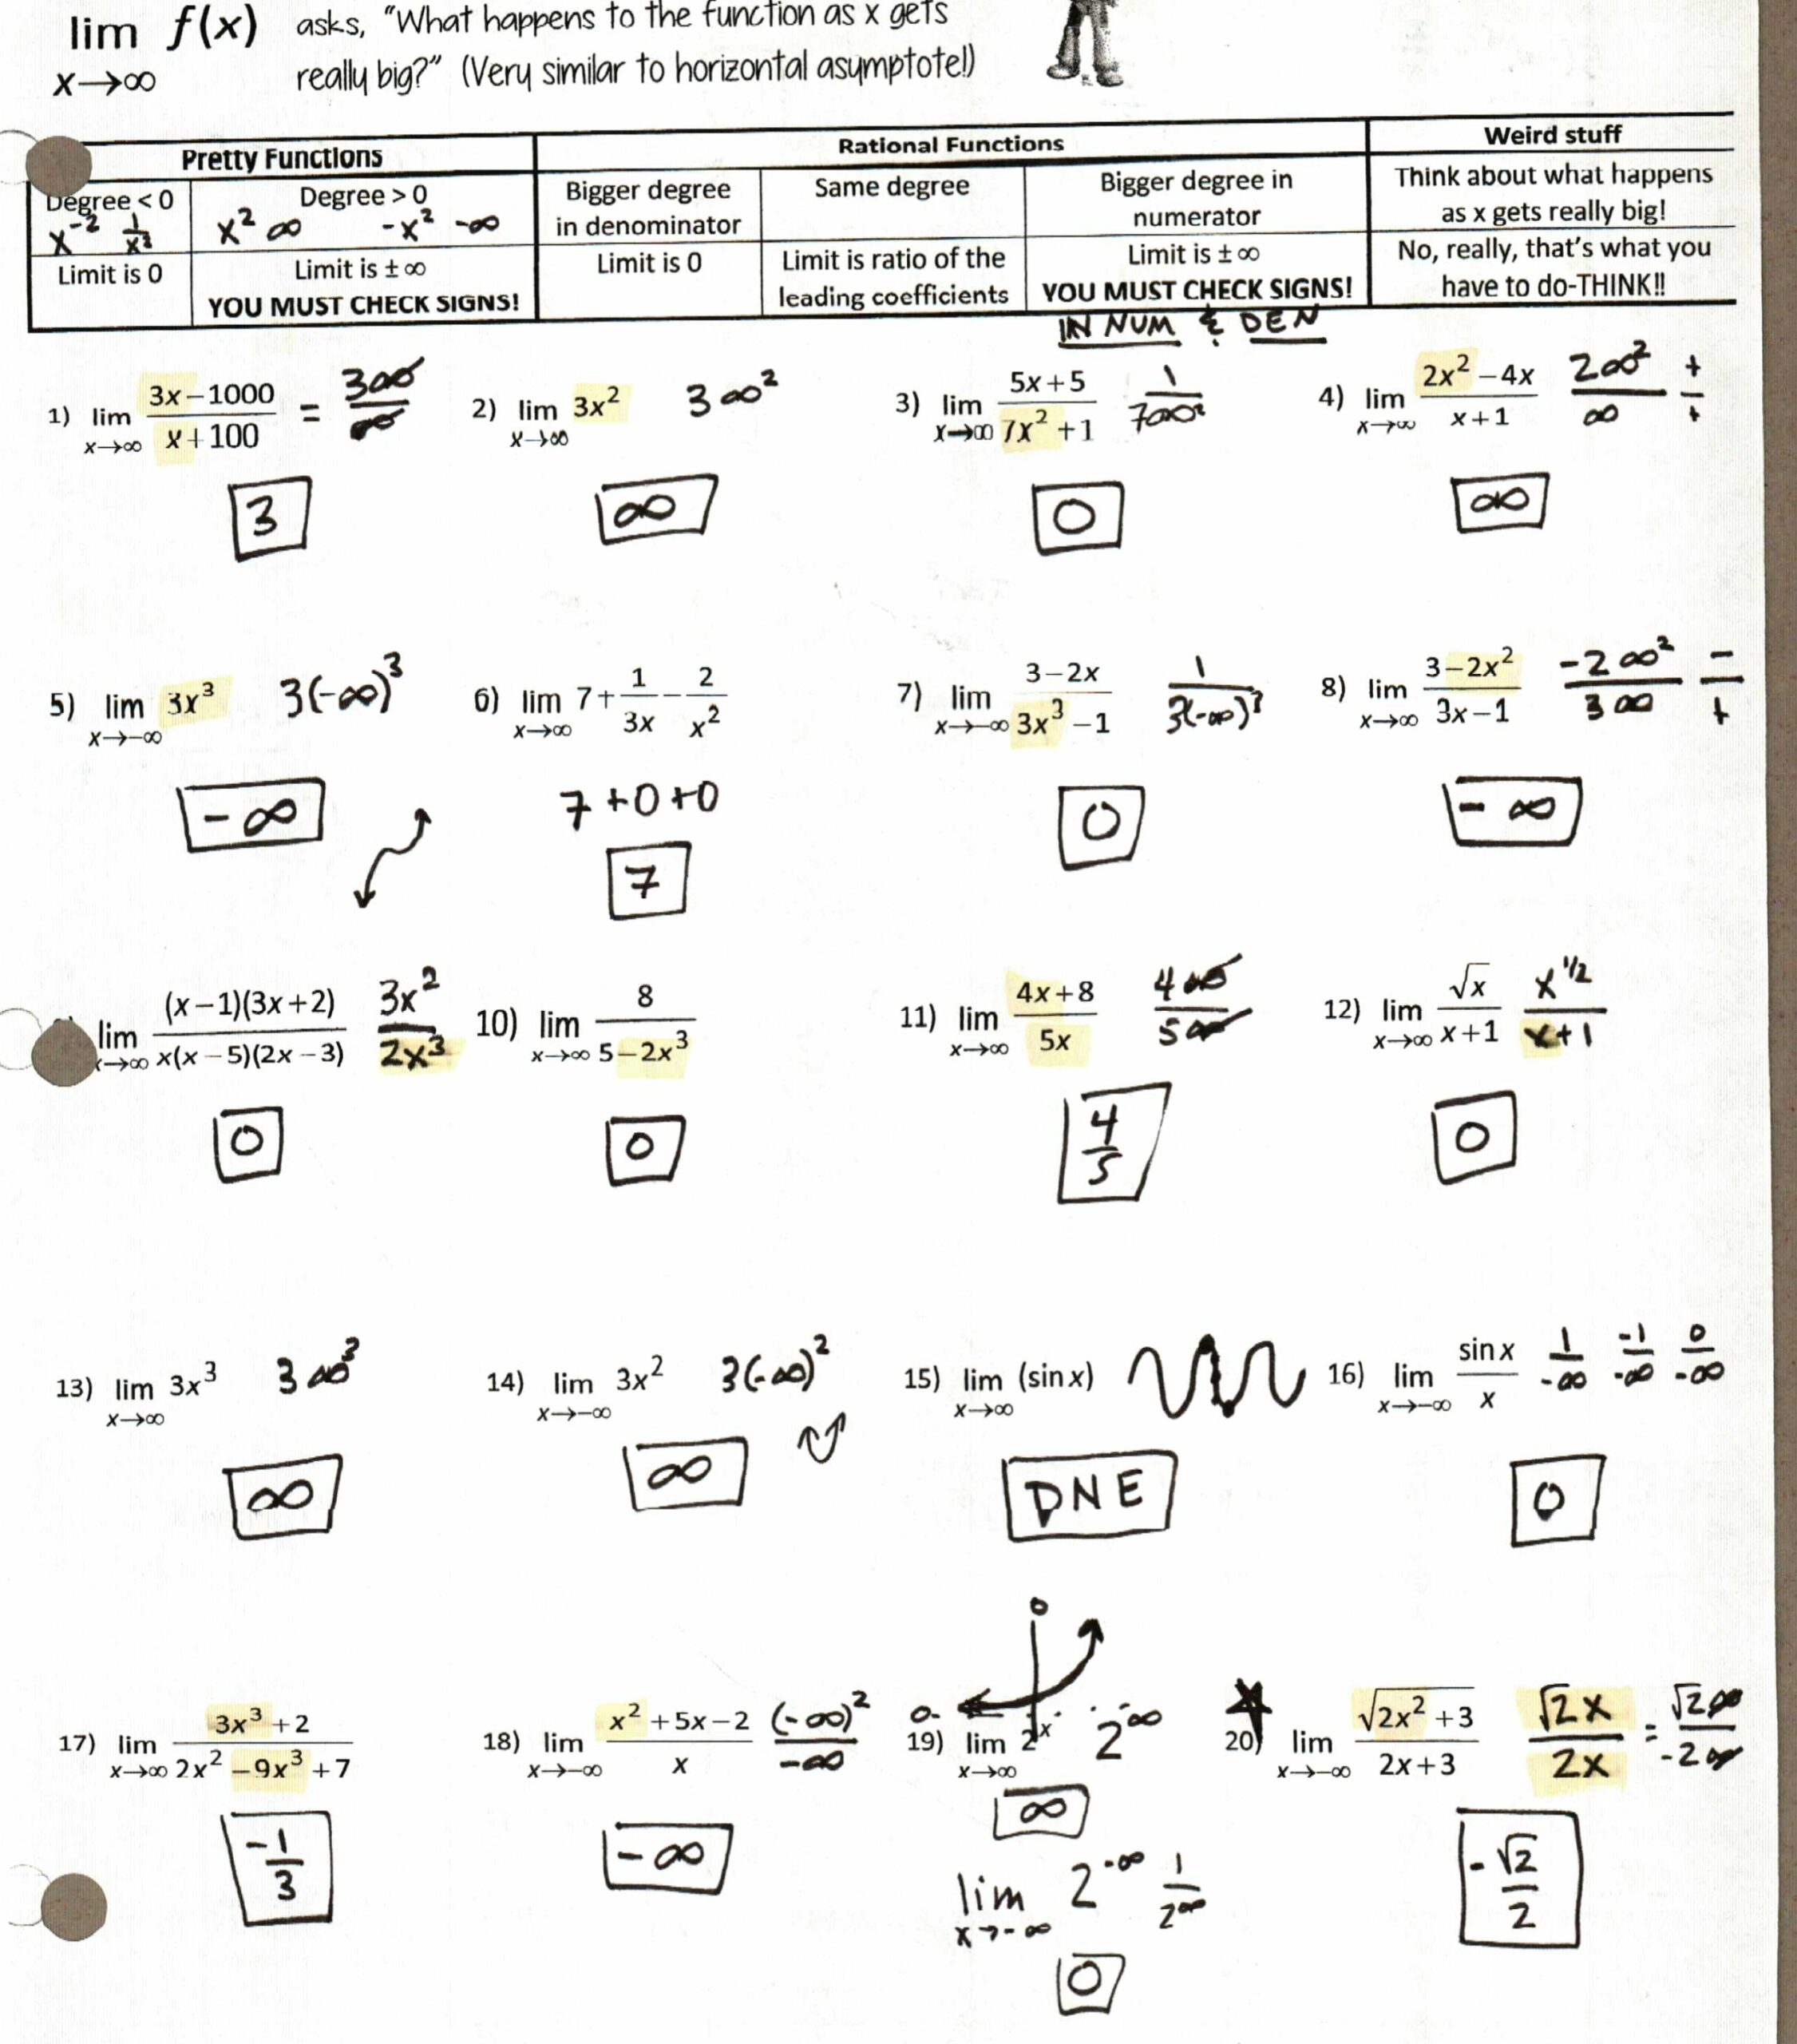 lim f(x) asks, "What happens to the function as x gets
x→∞ really big?" (Very similar to horizontal asymptote!)
Pretty Functions Rational Functions Weird stuff
Degree < 0 Degree > 0 Bigger degree in denominator Same degree Bigger degree in numerator Think about what happens as x gets really big!
x^-2 1/x² x² ∞ -x² -∞
Limit is 0 Limit is ± ∞ YOU MUST CHECK SIGNS! Limit is 0 Limit is ratio of the leading coefficients Limit is ± ∞ YOU MUST CHECK SIGNS! No, really, that's what you have to do-THINK!!
IN NUM & DEN
1) lim x→∞ (3x-1000)/(x+100) = 3∞/∞
2) lim x→∞ 3x² 3∞²
3) lim x→∞ (5x+5)/(7x²+1) 1/7∞²
4) lim x→∞ (2x²-4x)/(x+1) 2∞²/∞ +/+
3 ∞ 0 ∞
5) lim x→-∞ 3x³ 3(-∞)³
6) lim x→∞ 7+1/3x-2/x²
7) lim x→-∞ (3-2x)/(3x³-1) 1/3(-∞)³
8) lim x→∞ (3-2x²)/(3x-1) -2∞²/3∞ -/+
-∞ 7+0+0 0 -∞
7
lim x→∞ (x-1)(3x+2)/x(x-5)(2x-3) 3x²/2x³
10) lim x→∞ 8/(5-2x³)
11) lim x→∞ (4x+8)/5x 4∞/5∞
12) lim x→∞ √x/(x+1) x^1/2/(x+1)
0 0 4/5 0
13) lim x→∞ 3x³ 3∞³
14) lim x→-∞ 3x² 3(-∞)²
15) lim x→∞ (sin x)
16) lim x→-∞ sin x/x 1/-∞ -1/-∞ 0/-∞
∞ ∞ DNE 0
17) lim x→∞ (3x³+2)/(2x²-9x³+7)
18) lim x→-∞ (x²+5x-2)/x (-∞)²/-∞
19) lim x→∞ 2^x 2^∞
20) lim x→-∞ √(2x²+3)/(2x+3) √2x/2x = √2∞/-2∞
-1/3 -∞ ∞ -√2/2
lim x→-∞ 2^-∞ 1/2^∞
0